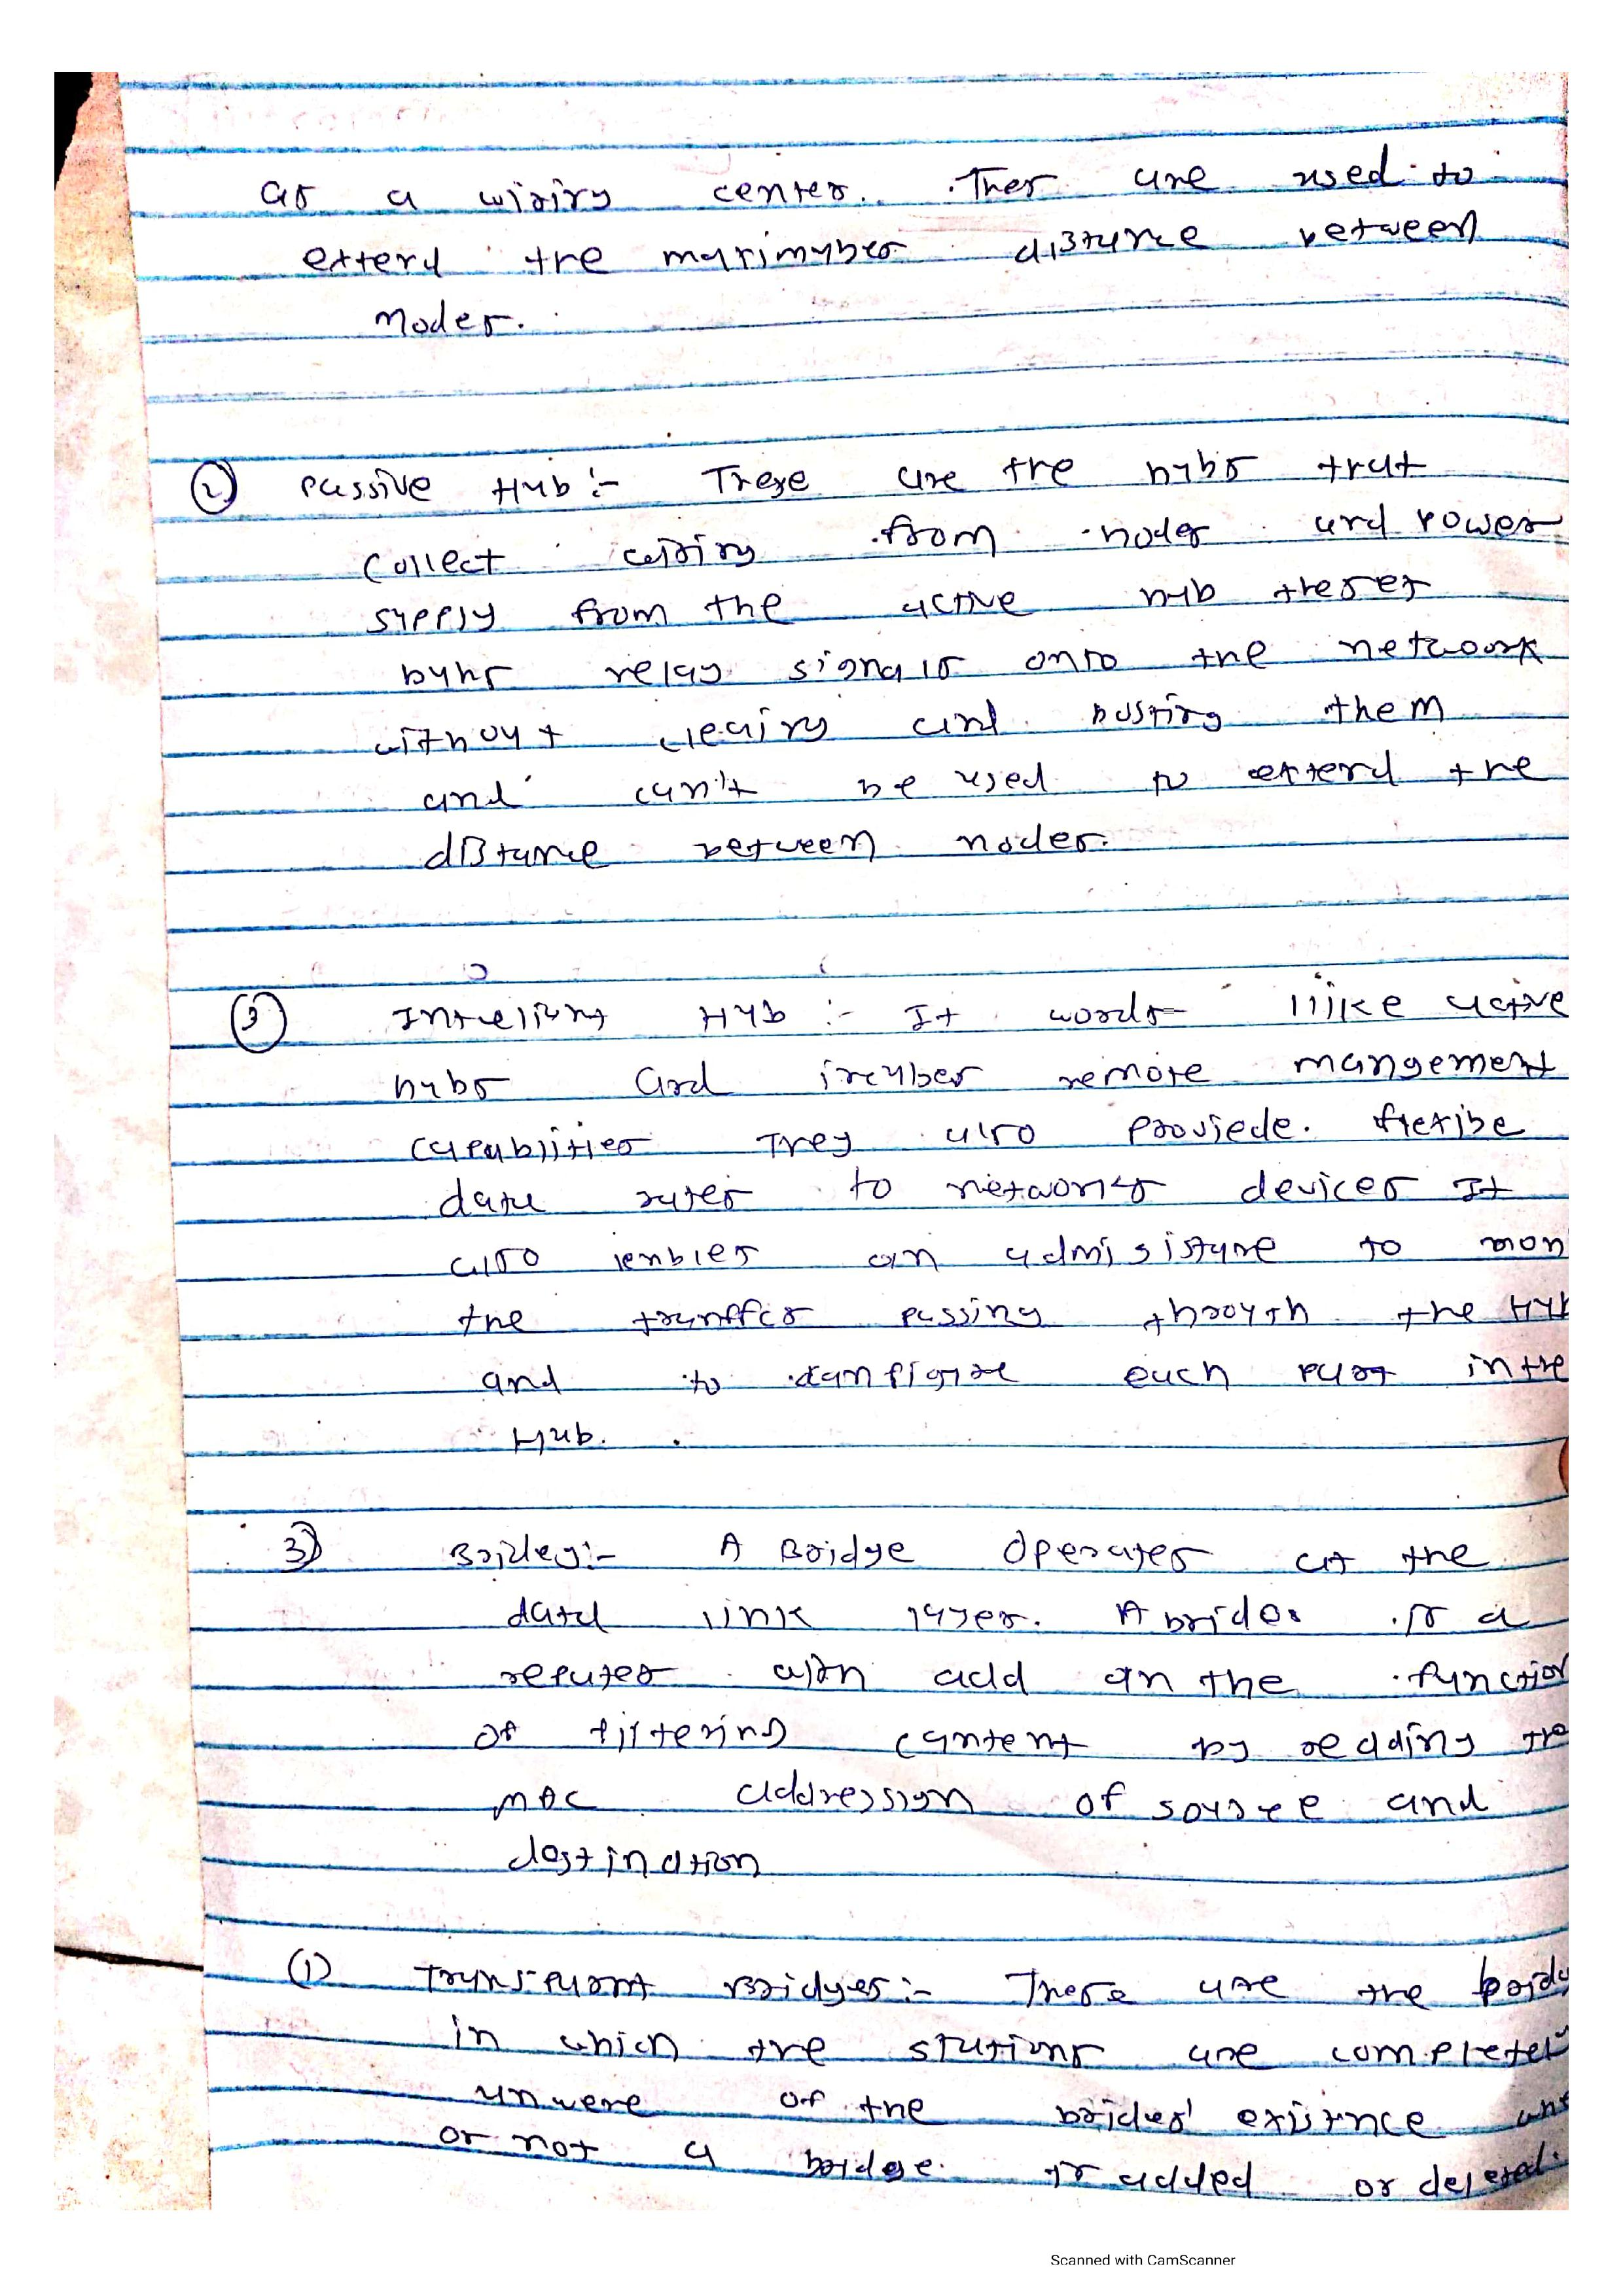 as a wiring center. Thes are used to
extend the maximyber distance between
nodes.
② Passive Hub :- These are the hubs that
collect wiring from nodes and Power
supply from the active hub theses
hubs relay signals onto the network
without cleaing and busting them
and can't be used to extend the
distance between nodes.
③ Intrelient Hub :- It words like active
hubs and incubes remote mangement
capablities They also Proviede. flexibe
data rates to networks devices It
also enbles an admisisture to mon
the traffics passing throygh the Hub
and to canfigure each part in the
Hub.
3) Bridey :- A Bridge Operates at the
data link layer. A brides is a
repater with add an the function
of filtering cantent by reading the
MAC addression of source and
destination
(1) Transparnt Bridges :- These are the bridg
in which the stations are completel
unwere of the brides' existnce
or not a bridge. is added or deleted.